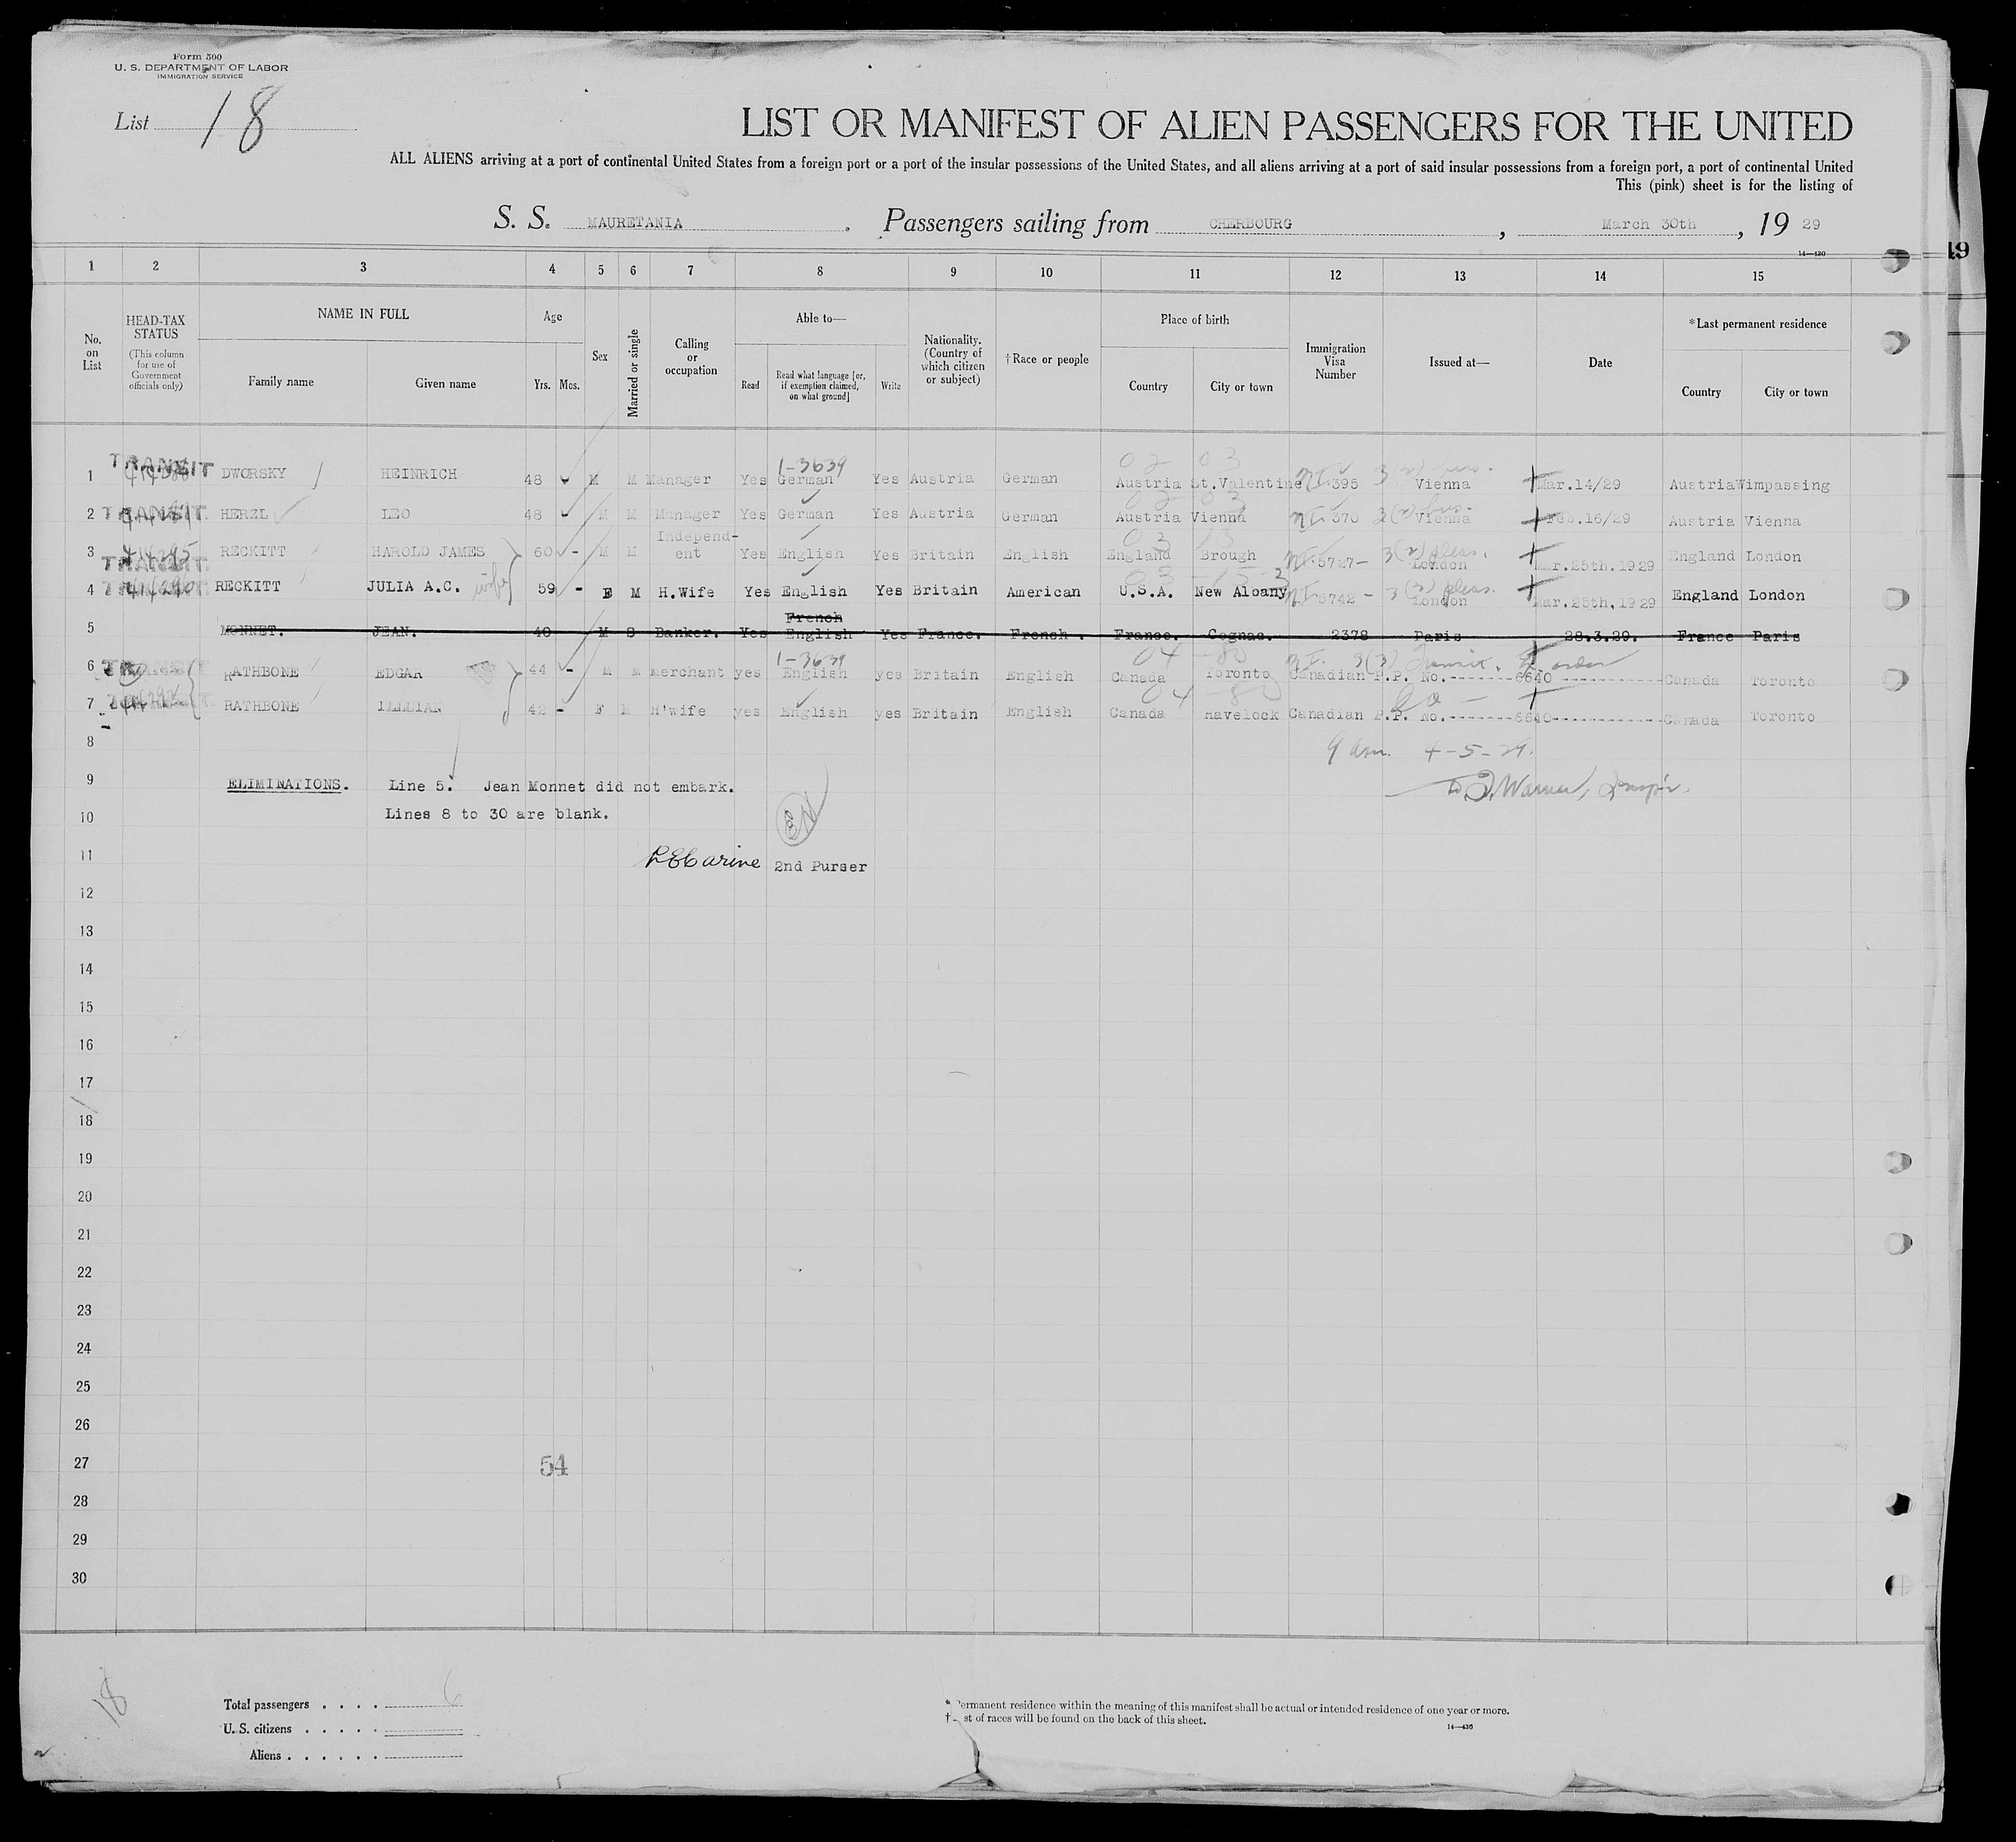 Form 500
U. S. DEPARTMENT OF LABOR
IMMIGRATION SERVICE
List 18
LIST OR MANIFEST OF ALIEN PASSENGERS FOR THE UNITED
ALL ALIENS arriving at a port of continental United States from a foreign port or a port of the insular possessions of the United States, and all aliens arriving at a port of said insular possessions from a foreign port, a port of continental United
This (pink) sheet is for the listing of
S. S. MAURETANIA . Passengers sailing from CHERBOURG , March 30th , 19 29
14—430
19
1 2 3 4 5 6 7 8 9 10 11 12 13 14 15
No. on List
HEAD-TAX STATUS
(This column for use of Government officials only)
NAME IN FULL
Family name Given name
Age
Yrs. Mos.
Sex
Married or single
Calling or occupation
Able to—
Read Read what language [or, if exemption claimed, on what ground] Write
Nationality. (Country of which citizen or subject)
†Race or people
Place of birth
Country City or town
Immigration Visa Number
Issued at—
Date
*Last permanent residence
Country City or town
1-3639 02 03
1 TRANSIT DWORSKY HEINRICH 48 M M Manager Yes German Yes Austria German Austria St.Valentine 395 3(2) bus. Vienna Mar.14/29 Austria Wimpassing
02 03
2 TRANSIT HERZL LEO 48 M M Manager Yes German Yes Austria German Austria Vienna 370 3(2) bus. Vienna Feb.16/29 Austria Vienna
3 TRANSIT RECKITT HAROLD JAMES 60 - M M Independ-ent Yes English Yes Britain English England Brough 5727- 3(2) pleas. London Mar.25th.1929 England London
4 TRANSIT RECKITT JULIA A.C. wife 59 - F M H.Wife Yes English Yes Britain American U.S.A. New Albany 5742 - 3(2) pleas. London Mar.25th.1929 England London
5 MONNET. JEAN. 40 M S Banker. Yes French English Yes France. French . France. Cognac. 2378 Paris 28.3.29. France Paris
1-3639 04 80
6 TRANSIT RATHBONE EDGAR 44 - M M merchant yes English yes Britain English Canada Toronto Canadian P.P. No.-------6640------------Canada Toronto
04 80
7 RATHBONE LILLIAN 42 - F M H'wife yes English yes Britain English Canada Havelock Canadian P.P. No.-------6640------------Canada Toronto
8
4-5-29.
9 ELIMINATIONS. Line 5. Jean Monnet did not embark.
Warner, Insp'r.
10 Lines 8 to 30 are blank.
11 2nd Purser
12
13
14
15
16
17
18
19
20
21
22
23
24
25
26
27 54
28
29
30
18
Total passengers . . . . 6
U. S. citizens . . . . .
Aliens . . . . . .
* Permanent residence within the meaning of this manifest shall be actual or intended residence of one year or more.
† st of races will be found on the back of this sheet.
14—430